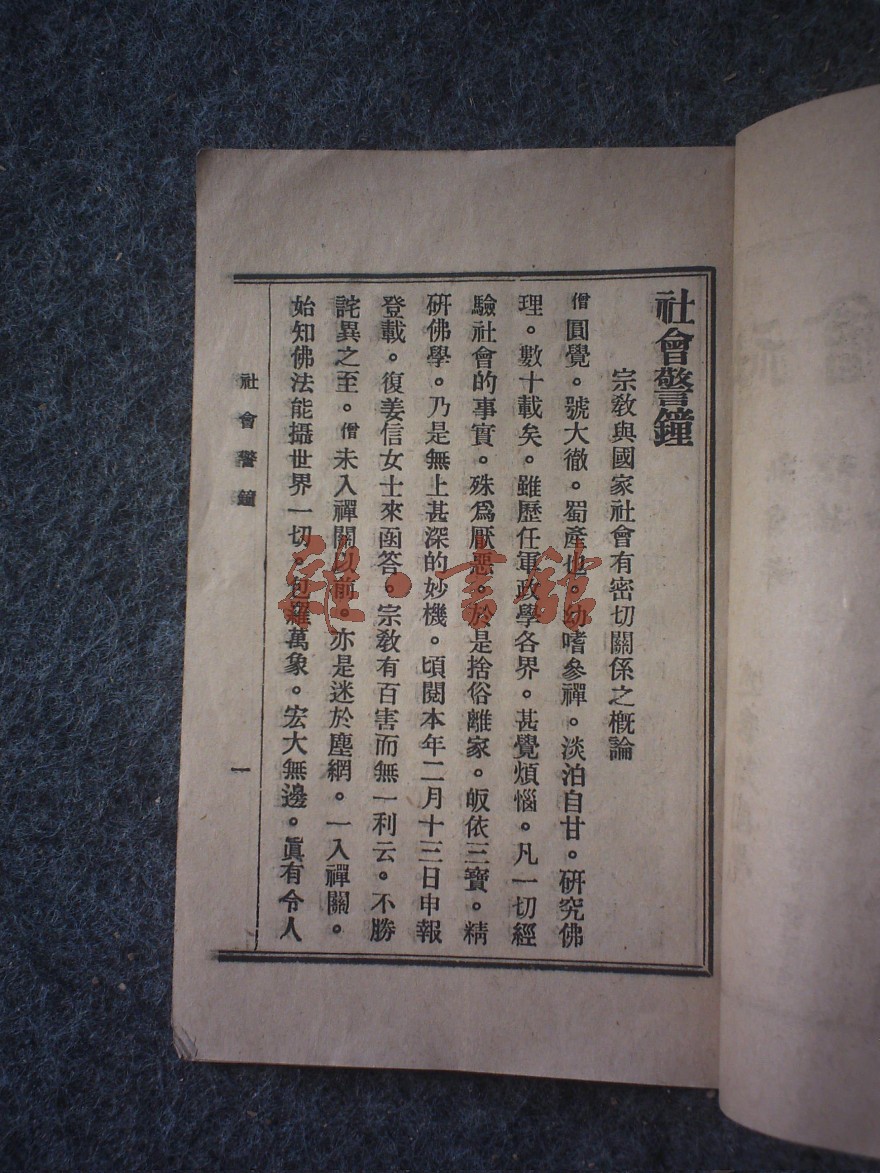 社會警鐘
宗敎與國家社會有密切關係之槪論
僧圓覺。號大徹。蜀產也。幼嗜參禪。淡泊自甘。硏究佛
理。數十載矣。雖歷任軍政學各界。甚覺煩惱。凡一切經
驗社會的事實。殊爲厭惡。於是捨俗離家。皈依三寶。精
硏佛學。乃是無上甚深的妙機。頃閱本年二月十三日申報
登載。復姜信女士來函答。宗敎有百害而無一利云。不勝
詫異之至。僧未入禪關以前。亦是迷於塵網。一入禪關。
始知佛法能攝世界一切。包羅萬象。宏大無邊。眞有令人
社會警鐘
一
雜·書館